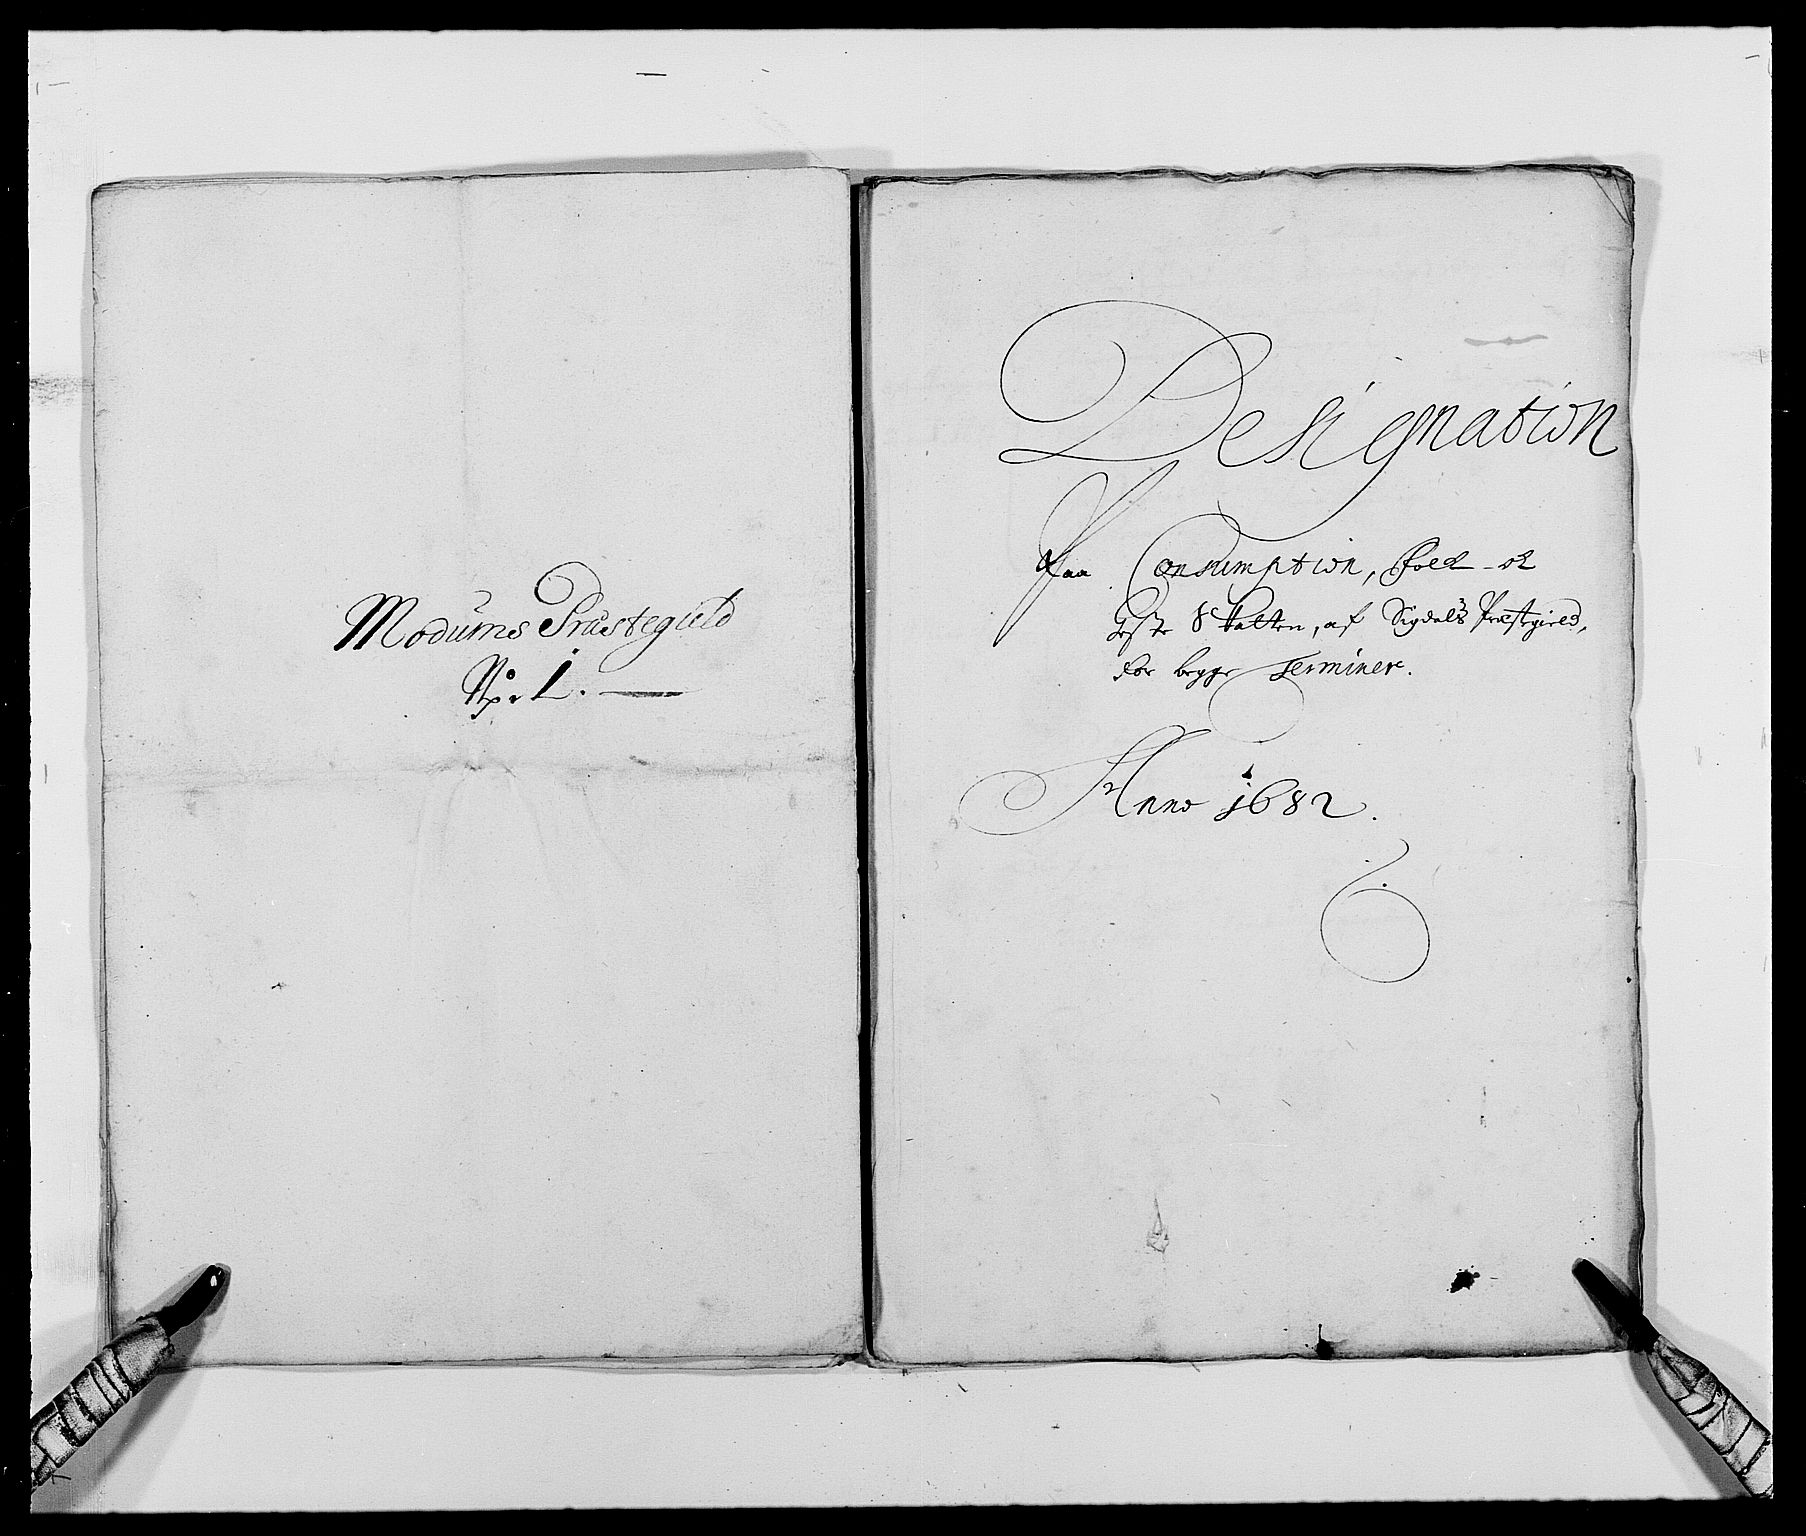 Modums Præstegield
No. 1.
Designation
Paa Consumption, Folck- och
Heste Skatten, af Sigdals Præstgield,
for begge Terminer.
Anno 1682.